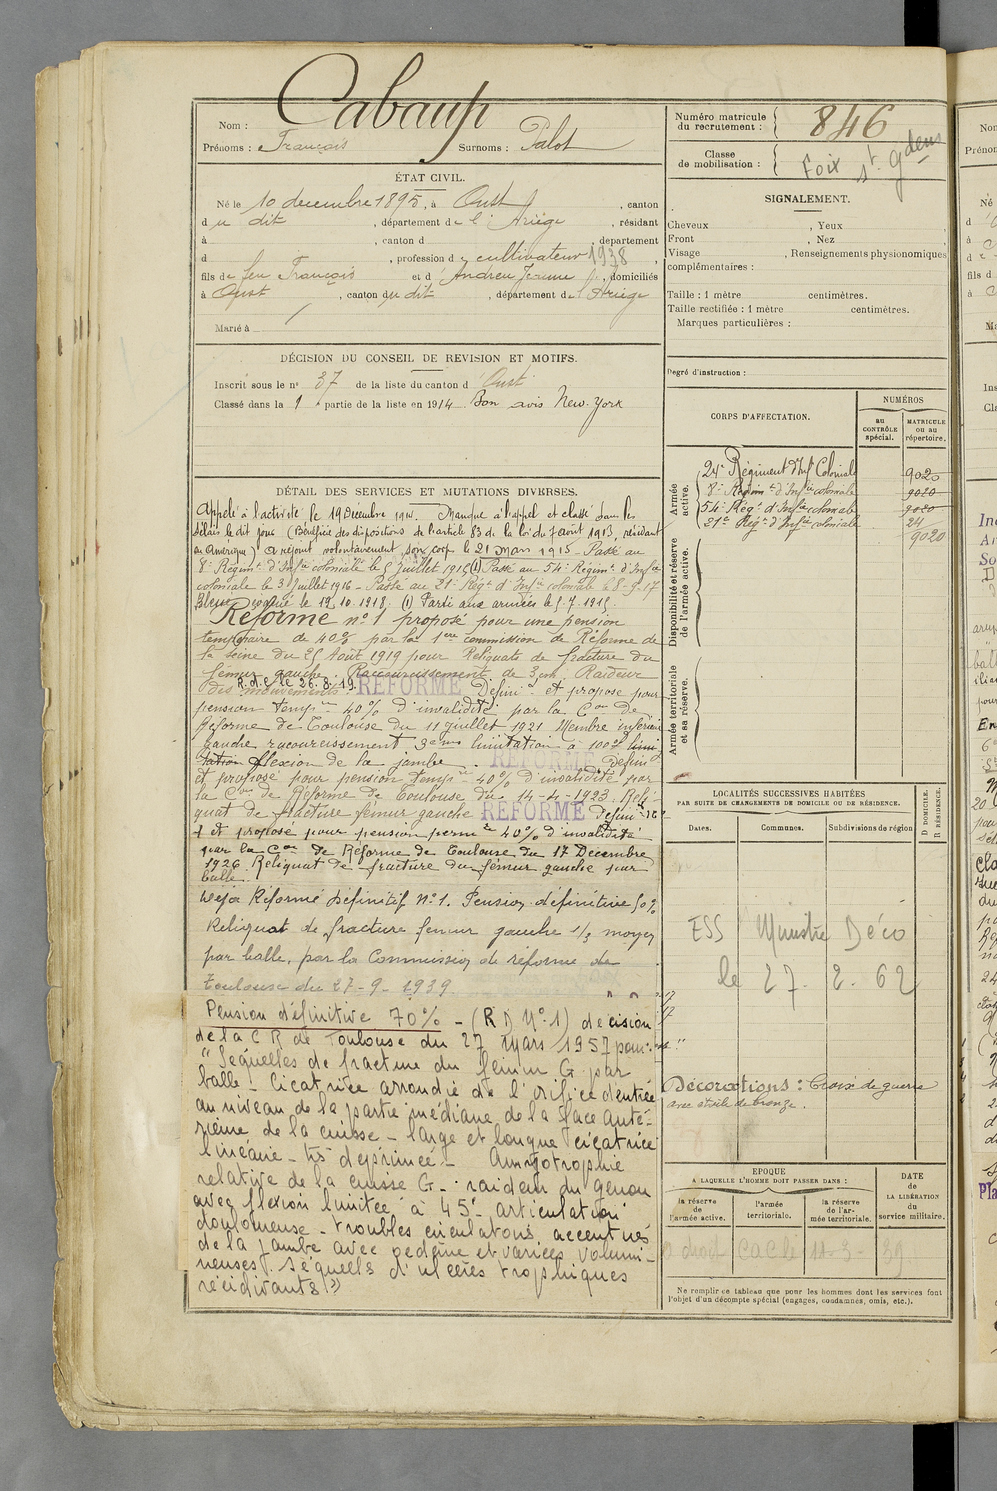 Nom : Cabaup
Prénoms : François Surnoms : Palot
ÉTAT CIVIL.
Né le 10 decembre 1895, à Oust, canton
du dit, département de l'Ariège, résidant
à , canton d , département
d , profession d cultivateur 1938,
fils de feu François et d'Andreu Jeanne, domiciliés
à Oust, canton du dit, département de l'Ariège
Marié à
DÉCISION DU CONSEIL DE REVISION ET MOTIFS.
Inscrit sous le n° 37 de la liste du canton d Oust
Classé dans la 1 partie de la liste en 1914. Bon avis New-York
DÉTAIL DES SERVICES ET MUTATIONS DIVERSES.
Appelé à l'activité le 19 Decembre 1914. Manque à l'appel et classé dans les
délais le dit jour (Bénéficie des dispositions de l'article 83 de la loi du 7 août 1913, résidant
en Amérique) a rejoint volontairement son corps le 21 mars 1915 - Passé au
8e Régimt d'Infie coloniale le 5 Juillet 1915 (1) Passé au 54e Régimt d'Infie
coloniale le 3 Juillet 1916 - Passé au 21e Régt d'Infie coloniale le 8-9-17
Blessé évacué le 19.10.1918. (1) Parti aux armées le 5.7.1915.
Réforme n° 1 proposé pour une pension
temporaire de 40% par la 1ere commission de Réforme de
la Seine du 25 Août 1919 pour Reliquats de fracture du
fémur gauche. Raccourcissement de 3cm. Raideur
des mouvements R.d.c le 26.8.19. REFORME Définif et proposé pour
pension tempre 40% d'invalidité par la Con de
Réforme de Toulouse du 11 Juillet 1921 Membre inférieur
gauche racourcissement 3cms limitation à 100° limi
tation flexion de la jambe. REFORME Définif
et proposé pour pension tempre 40% d'invalidité par
la Con de Réforme de Toulouse du 14-4-1923. Reli-
quat de fracture fémur gauche REFORME Définif
1 et proposé pour pension perme 40% d'invalidité
par la Con de Réforme de Toulouse du 17 Decembre
1926 Reliquat de fracture du fémur gauche par
balle.
Déjà Réformé définitif N°1. Pension définitive 50%
Reliquat de fracture femur gauche 1/3 moyen
par balle, par la Commission de réforme de
Toulouse du 27-9-1939
Pension définitive 70% - (RD N°1) décision
de la C R de Toulouse du 27 Mars 1957 pour :
"Sequelles de fracture du fémur G. par
balle - Cicatrice arrondie de l'orifice d'entrée
au niveau de la partie médiane de la face anté-
rieure de la cuisse - large et longue cicatrice
linéaire - très déprimée - Amyotrophie
relative de la cuisse G - raideur du genou
avec flexion limitée à 45° articulation
douloureuse - troubles circulatoires accentués
de la jambe avec oedème et varices volumi-
neuses. Séquelles d'ulcères trophiques
récidivants"
Numéro matricule du recrutement : 846
Classe de mobilisation :
Foix St Gdens
SIGNALEMENT.
Cheveux , Yeux
Front , Nez
Visage , Renseignements physionomiques
complémentaires :
Taille : 1 mètre centimètres.
Taille rectifiée : 1 mètre centimètres.
Marques particulières :
Degré d'instruction :
CORPS D'AFFECTATION.
NUMÉROS
AU CONTRÔLE spécial.
MATRICULE OU AU répertoire.
Armée active.
24e Régiment d'Infie Coloniale 9020
8e Régimt d'Infie coloniale 9020
54e Régt d'Infie coloniale 9020
21e Régt d'Infie coloniale 24
9020
Disponibilité et réserve de l'armée active.
Armée territoriale et sa réserve.
LOCALITÉS SUCCESSIVES HABITÉES
PAR SUITE DE CHANGEMENTS DE DOMICILE OU DE RÉSIDENCE.
Dates. Communes. Subdivisions de région
D. DOMICILE. R. RÉSIDENCE.
ESS Ministre Déco
le 27. 2. 62
Décorations : Croix de guerre
avec etoile de bronze.
EPOQUE
A LAQUELLE L'HOMME DOIT PASSER DANS :
la réserve de l'armée active.
l'armée territoriale.
la réserve de l'armée territoriale.
DATE de LA LIBÉRATION du service militaire.
11-3-39
Ne remplir ce tableau que pour les hommes dont les services font
l'objet d'un décompte spécial (engagés, condamnés, omis, etc.).